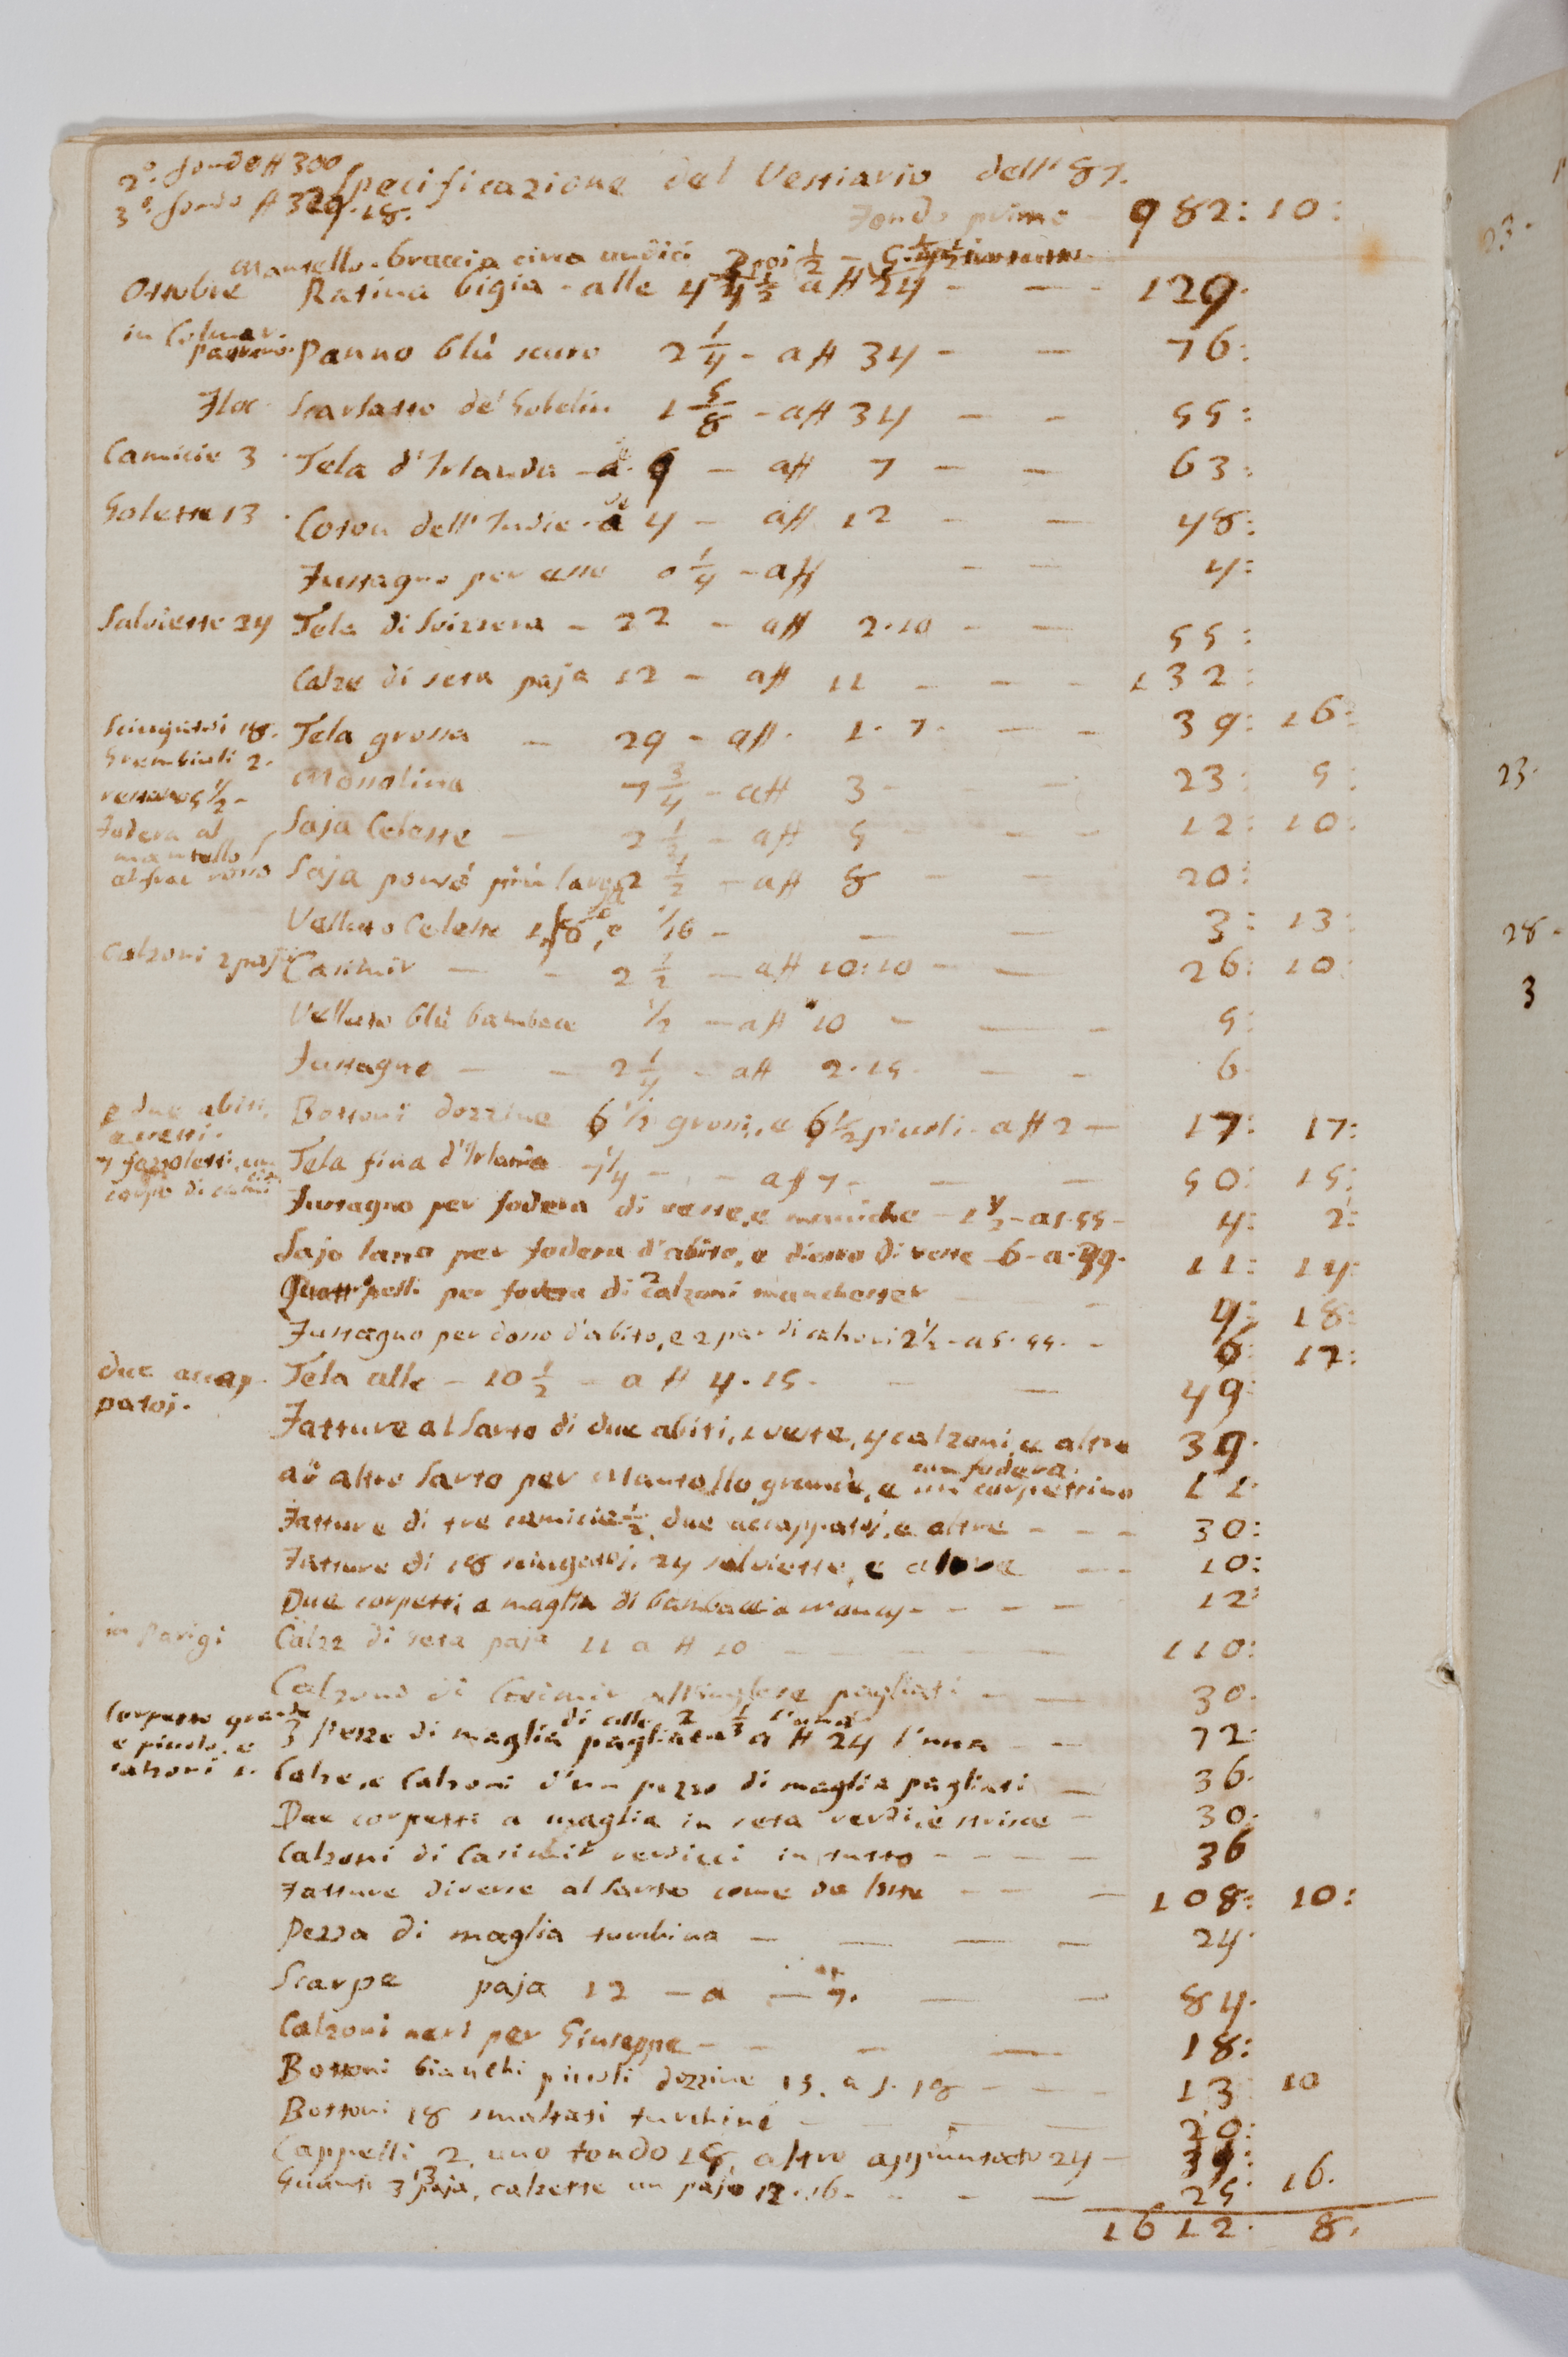 2.° fondo ₶ 300
3.° fondo ₶ 329.18.
Specificazione del Vestiario dell' 87.
Fondo primo - 982: 10:
Mantello. braccia circa undici
Ottobre Ratina bigia - alle 4 1/2 a ₶ 24 - - 129.
in Colmar.
pastrano. Panno blù scuro 2 1/4 - a ₶ 34 - - 76:
Frac Scarlatto de' Gobelin 1 5/8 - a ₶ 34 - - 55:
Camicie 3 Tela d'Irlanda - a.e 9 - a ₶ 7 - - 63:
Golette 13 Coton dell' Indie - a.e 4 - a ₶ 12 - - 48:
Fustagno per esse 0 1/4 - a ₶ - - 4:
Salviette 24 Tela di Svizzera - 22 - a ₶ 2.10 - - 55:
Calze di seta paja 12 - a ₶ 11 - - - 132:
Sciugatoi 18. Tela grossa - 29 - a ₶. 1. 7. - - 39: 16:
Grembiuli 2.
restano 5 1/2 - Mossolina 7 3/4 - a ₶ 3 - - - 23: 5:
Fodera al
mantello Saja Celeste - 2 1/2 - a ₶ 5 - - - 12: 10:
al frac rosso Saja ponsò più larga 2 1/2 - a ₶ 8 - - 20:
Velluto Celeste 1/8, e 1/16 - - - 3: 13:
Calzoni 2 paja Casimir - - 2 1/2 - a ₶ 10:10 - - 26: 10:
Velluto blù bambace 1/2 - a ₶ 10 - - - 5:
Fustagno - - 2 1/4 - a ₶ 2.15. - - 6.
p due abiti,
e vesti. Bottoni dozzine 6 1/2 grossi, e 6 1/2 piccoli. a ₶ 2 - 17: 17:
7 fazzoletti, un
corpo di camicia Tela fina d'Irlanda 7 1/4 - - a ₶ 7 - - - 50: 15:
Fustagno per fodera di veste, e maniche - 1 1/2 - a s. 55 - 4: 2:
Sajo lana per fodera d'abito, e dietro di veste 6 - a. 39. 11: 14:
Quattro pelli per fodera di 2 calzoni manchester - - 4: 18:
Fustagno per dosso d'abito, e 2 par di calzoni 2 1/2 - a s. 55. - 6: 17:
due accap-
patoj. Tela alle - 10 1/2 - a ₶ 4.15. - - 49:
Fatture al Sarto di due abiti, 1 veste, 4 calzoni, e altro 39.
ad altro Sarto per Mantello grande, e un corpettino con fodera. 11.
Fatture di tre camicie 1/2, due accappatoj, e altre - - - 30:
Fatture di 18 sciugatoj, 24 salviette, e altre - - 10:
Due corpetti a maglia di bambacia nancy - - - - 12:
in Parigi Calze di seta paja 11 a ₶ 10 - - - - - 110:
Calzoni di Casimir all'inglese pagliati - - 30.
Corpetto grande
e piccolo, e
calzoni 1. 3 Pezze di maglia pagliata di alle 2 1/3 l'una a ₶ 24 l'una - - 72:
Calze, e Calzoni d'un pezzo di maglia pagliati - 36.
Due corpetti a maglia in seta verdi, e strisce - 30:
Calzoni di Casimir verdicci in tutto - - - - - 36
Fatture diverse al Sarto come da lista - - - 108: 10:
Pezza di maglia turchina - - - - 24.
Scarpe paja 12 - a - 7. - - 84.
Calzoni neri per Giuseppe - - - - 18:
Bottoni bianchi piccoli dozzine 15. a s. 18 - - - 13 10
Bottoni 18 smaltati turchini - - - - 20:
Cappelli 2, uno tondo 15, altro appuntato 24 - 39:
Guanti 3 paja, calzette un pajo 12.16. - - - - 25 16.
1612: 8.
23.
23.
28.
3